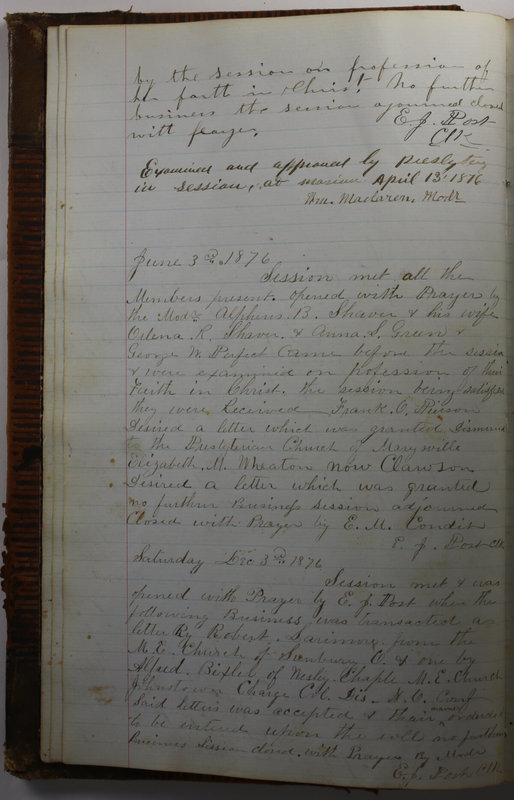 by the session on profession of
her faith in Christ. No further
business the session ajourned closed
with prayer.
E. J. Post
Clk
Examined and approved by Presbytery
in session, at Marion April 13, 1876
Wm. Maclaren, Modr
June 3d, 1876
Session met all the
Members present. opened with Prayer by
the Modr Alpheus B. Shaver & his wife
R. Shaver. & Anna S. Green &
George W. Perfect Came before the session
& were examined on Profession of their
Faith in Christ. the session being satisfied
they were Received Frank O.
Desired a letter which was granted
to the Presbyterian Church of Marysville
Elizabeth M. Wheaton now Clawson
Desired a letter which was granted
no further Business session adjourned
Closed with Prayer by E. M. Condit
E. J. Post Clk
Saturday Dec 3d, 1876
Session met & was
opened with Prayer by E. J. Post when the
following Business was transacted a
letter By Robert Larimore from the
M. E. Church of Sunbury O. & one by
Alfred Bixler of Wesley Chaple M. E. Church
Johnstown Charge Col. Dis. N. O. Conf
Said letters was accepted & their names ordered
to be entered upon the roll no further
Business Session closed with Prayer By Modr
E. J. Post Clk